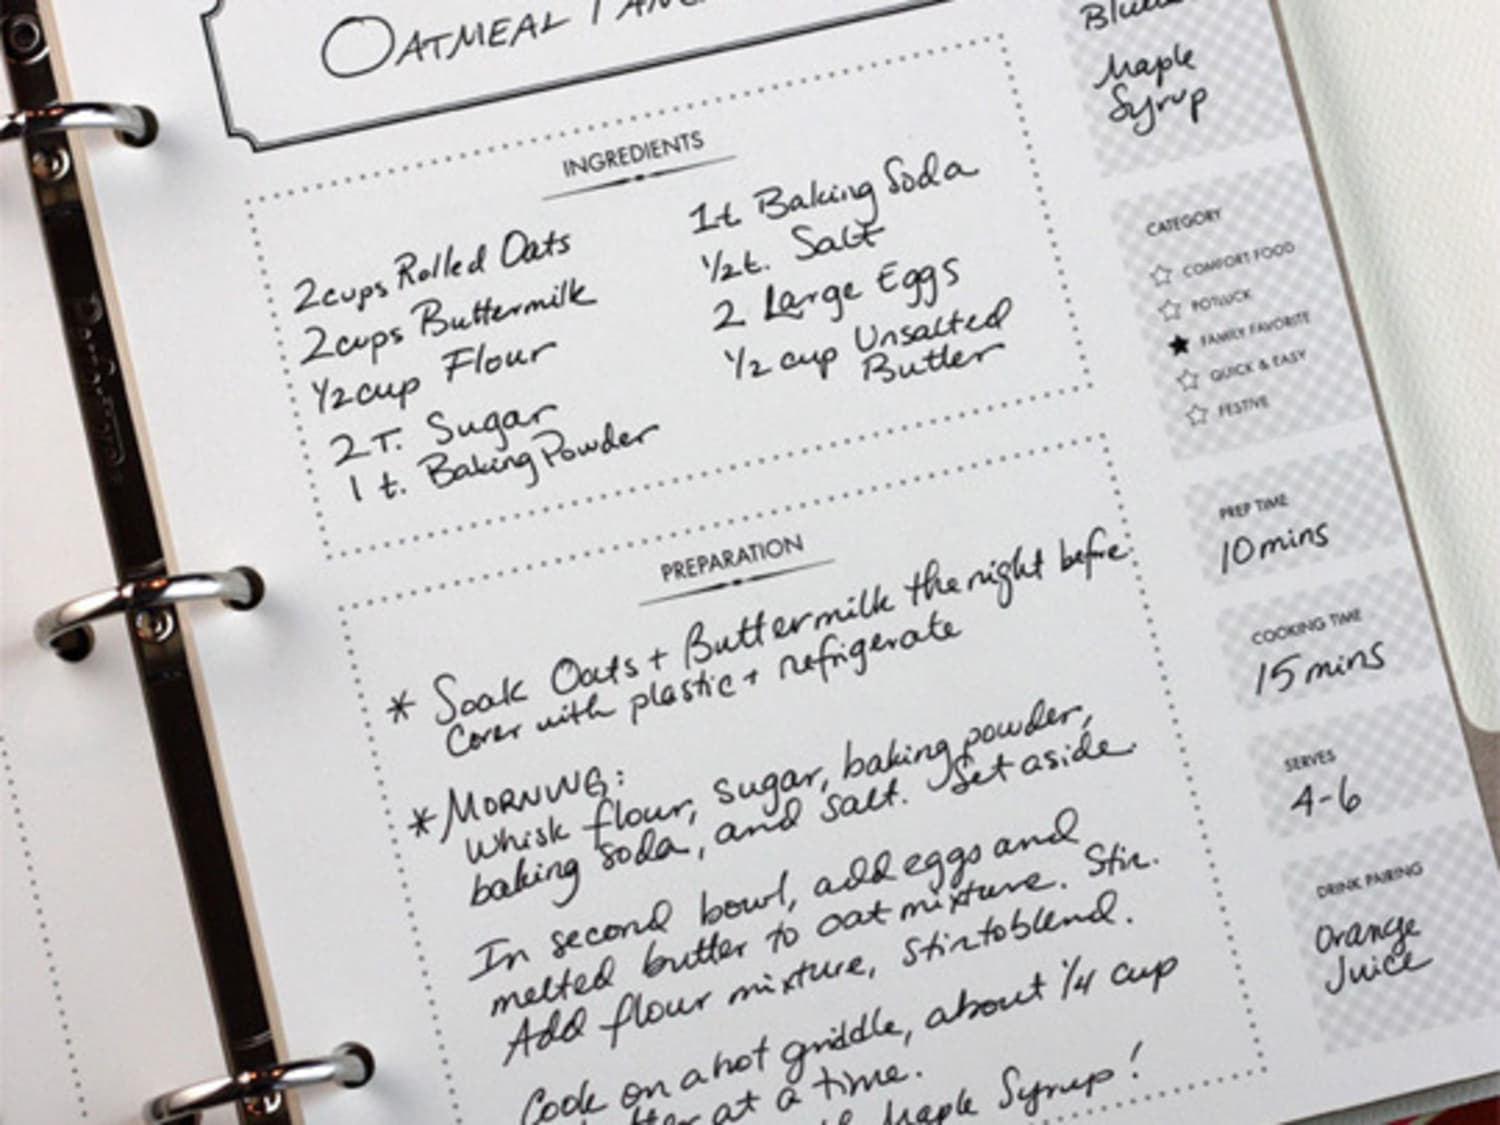 OATMEAL
INGREDIENTS
2 cups Rolled Oats
2 cups Buttermilk
1/2 cup Flour
2 T. Sugar
1 t. Baking Powder
1t. Baking Soda
1/2 t. Salt
2 Large Eggs
1/2 cup Unsalted
Butter
PREPARATION
* Soak Oats + Buttermilk the night before.
Cover with plastic + refrigerate
* MORNING:
Whisk flour, sugar, baking powder,
baking soda, and salt. Set aside.
In second bowl, add eggs and
melted butter to oat mixture. Stir.
Add flour mixture, stir to blend.
Cook on a hot griddle, about 1/4 cup
at a time.
Maple Syrup!
Maple
Syrup
CATEGORY
☆ COMFORT FOOD
☆ POTLUCK
★ FAMILY FAVORITE
☆ QUICK & EASY
☆ FESTIVE
PREP TIME
10 mins
COOKING TIME
15 mins
SERVES
4-6
DRINK PAIRING
Orange
Juice